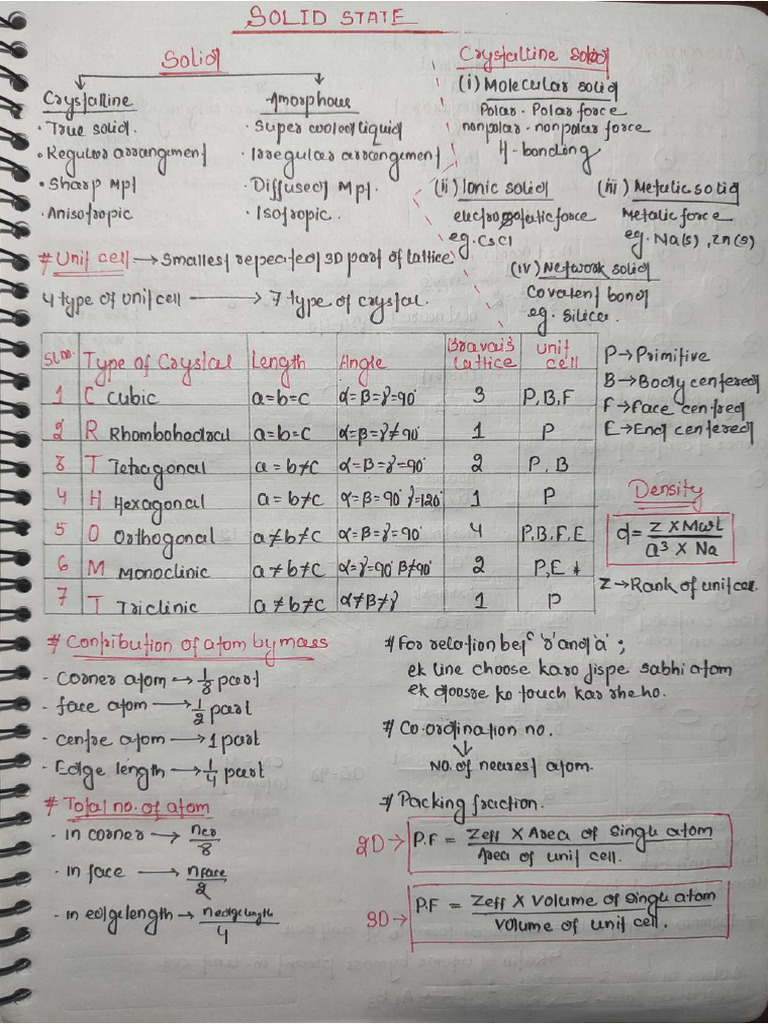 SOLID STATE
Solid
Crystalline
· True solid.
· Regular arrangement
· Sharp Mpt
· Anisotropic
Amorphous
· Super cooled liquid
· Irregular arrangement
· Diffused Mpt.
· Isotropic.
Crystalline Solid
(i) Molecular solid
Polar - Polar force
nonpolar - nonpolar force
H-bonding
(ii) Ionic solid
electrostatic force
eg. CsCl
(iii) Metalic solid
Metalic force
eg. Na(s), Zn(s)
(iv) Network solid
Covalent bond
eg. Silica.
# Unit cell → Smallest repeated 3D part of lattice
4 type of unit cell → 7 type of crystal.
Sl no. Type of Crystal Length Angle Bravais lattice unit cell
1 C Cubic a=b=c α=β=γ=90° 3 P,B,F
2 R Rhombohedral a=b=c α=β=γ≠90° 1 P
3 T Tetragonal a=b≠c α=β=γ=90° 2 P,B
4 H Hexagonal a=b≠c α=β=90° γ=120° 1 P
5 O Orthogonal a≠b≠c α=β=γ=90° 4 P,B,F,E
6 M Monoclinic a≠b≠c α=γ=90° β≠90° 2 P,E
7 T Triclinic a≠b≠c α≠β≠γ 1 P
P→Primitive
B→Body centered
F→Face centred
E→End centered
Density
d = Z × Mwt / a³ × Na
Z→Rank of unit cell.
# Contribution of atom by mass
- Corner atom → 1/8 part
- face atom → 1/2 part
- centre atom → 1 part
- Edge length → 1/4 part
# Total no. of atom
- in corner → ncr/8
- in face → nface/2
- in edge length → nedge length/4
# For relation betⁿ 'r' and 'a' ;
ek line choose karo jispe sabhi atom
ek doosre ko touch kar rhe ho.
# Co-ordination no.
↓
No. of nearest atom.
# Packing fraction.
2D → P.F = Zeff × Area of single atom / Area of unit cell.
3D → P.F = Zeff × Volume of single atom / Volume of unit cell.